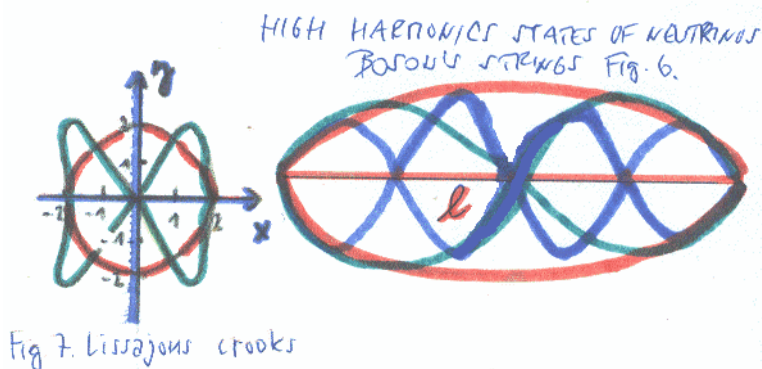 HIGH HARMONICS STATES OF NEUTRINOS
BOSON'S STRINGS Fig. 6.
y
2
1
-2 -1 1 2
x
-1
-2
l
Fig 7. Lissajous crooks